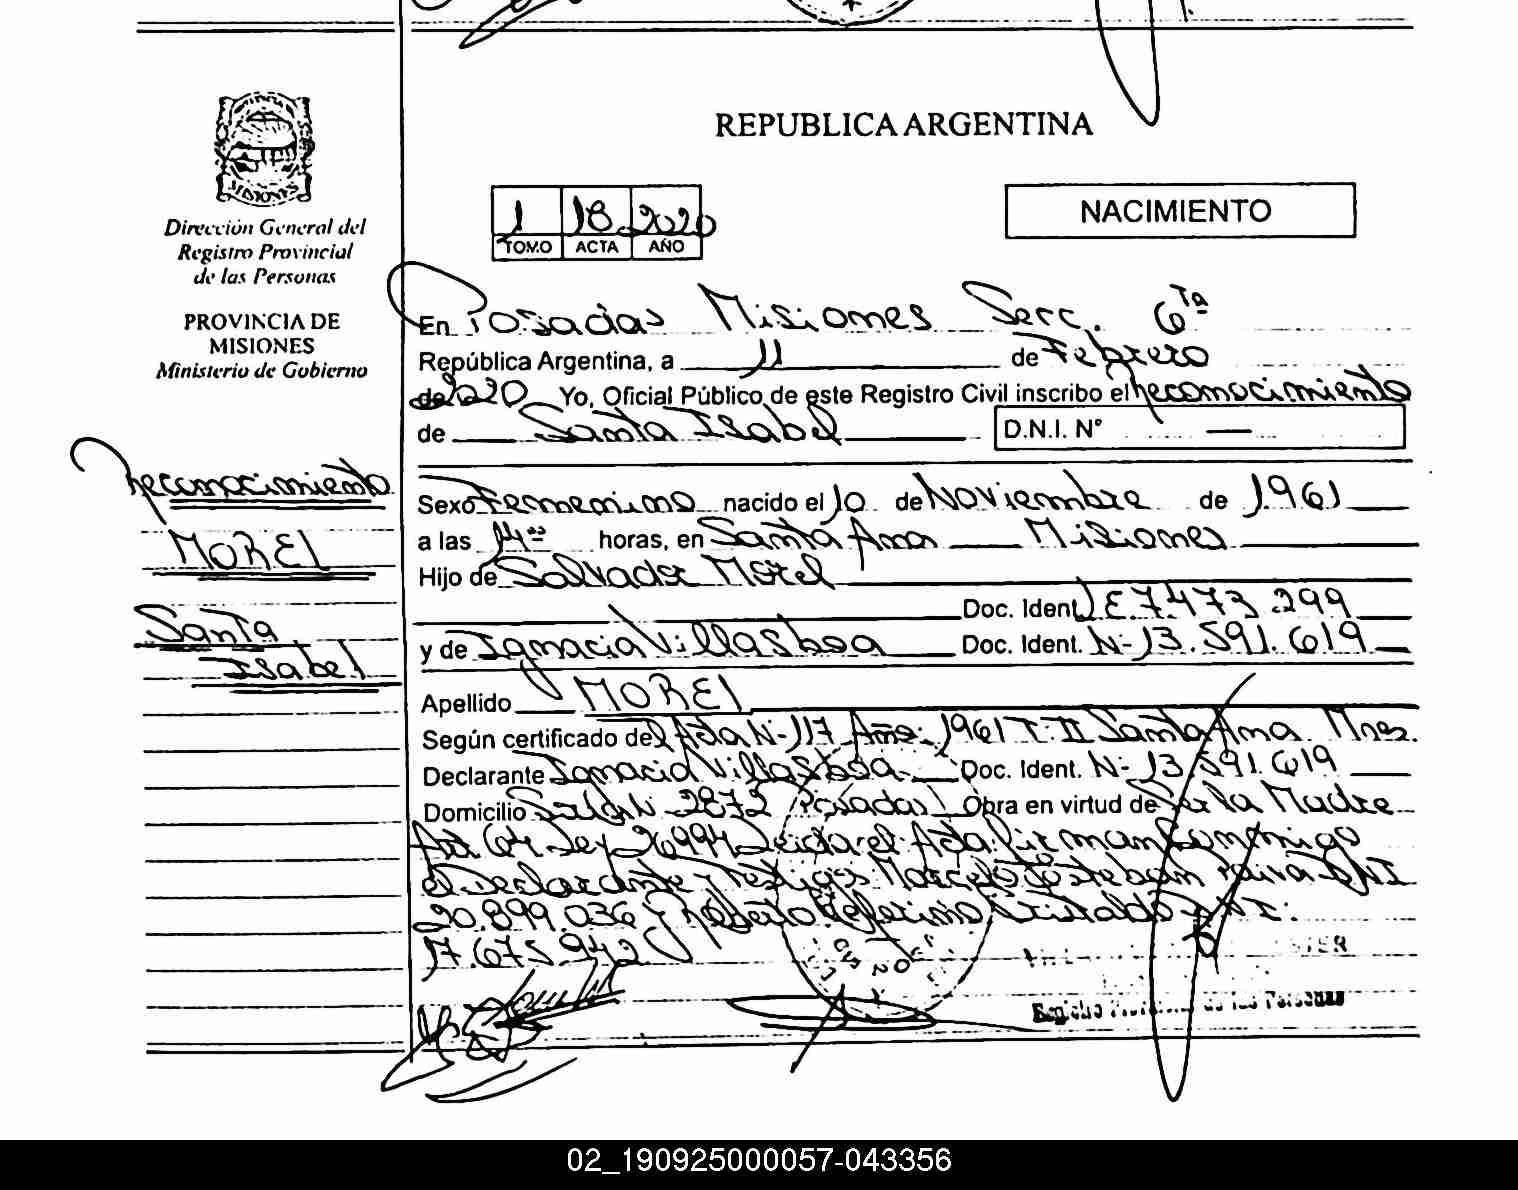 REPUBLICA ARGENTINA
MISIONES
Dirección General del
Registro Provincial
de las Personas
PROVINCIA DE
MISIONES
Ministerio de Gobierno
1 18 2020
TOMO ACTA AÑO
NACIMIENTO
En Posadas Misiones Secc. 6ta
República Argentina, a 11 de Febrero
de 2020 Yo, Oficial Público de este Registro Civil inscribo el reconocimiento
de Santa Isabel D.N.I. N° —
reconocimiento
MOREL
Santa
Isabel
Sexo Femenino nacido el 10 de Noviembre de 1961
a las 14 horas, en Santa Ana Misiones
Hijo de Salvador Morel
Doc. Ident. LE 7.473.299
y de Ignacia Villasboa Doc. Ident. N- 13.591.619
Apellido MOREL
Según certificado del Acta N- 117 Año: 1961 T: II Santa Ana Mnes.
Declarante Ignacia Villasboa Doc. Ident. N- 13.591.619
Domicilio 2872 Posadas Obra en virtud de Ser la Madre
Art 64 Ley 26994 Leida el Acta firman conmigo
el Declarante y Testigos Marcelo Esteban Paiva DNI
20.899.036 y Roberto Ceferino Cristaldo DNI:
17.675.942
Registro Provincial de las Personas
02_190925000057-043356